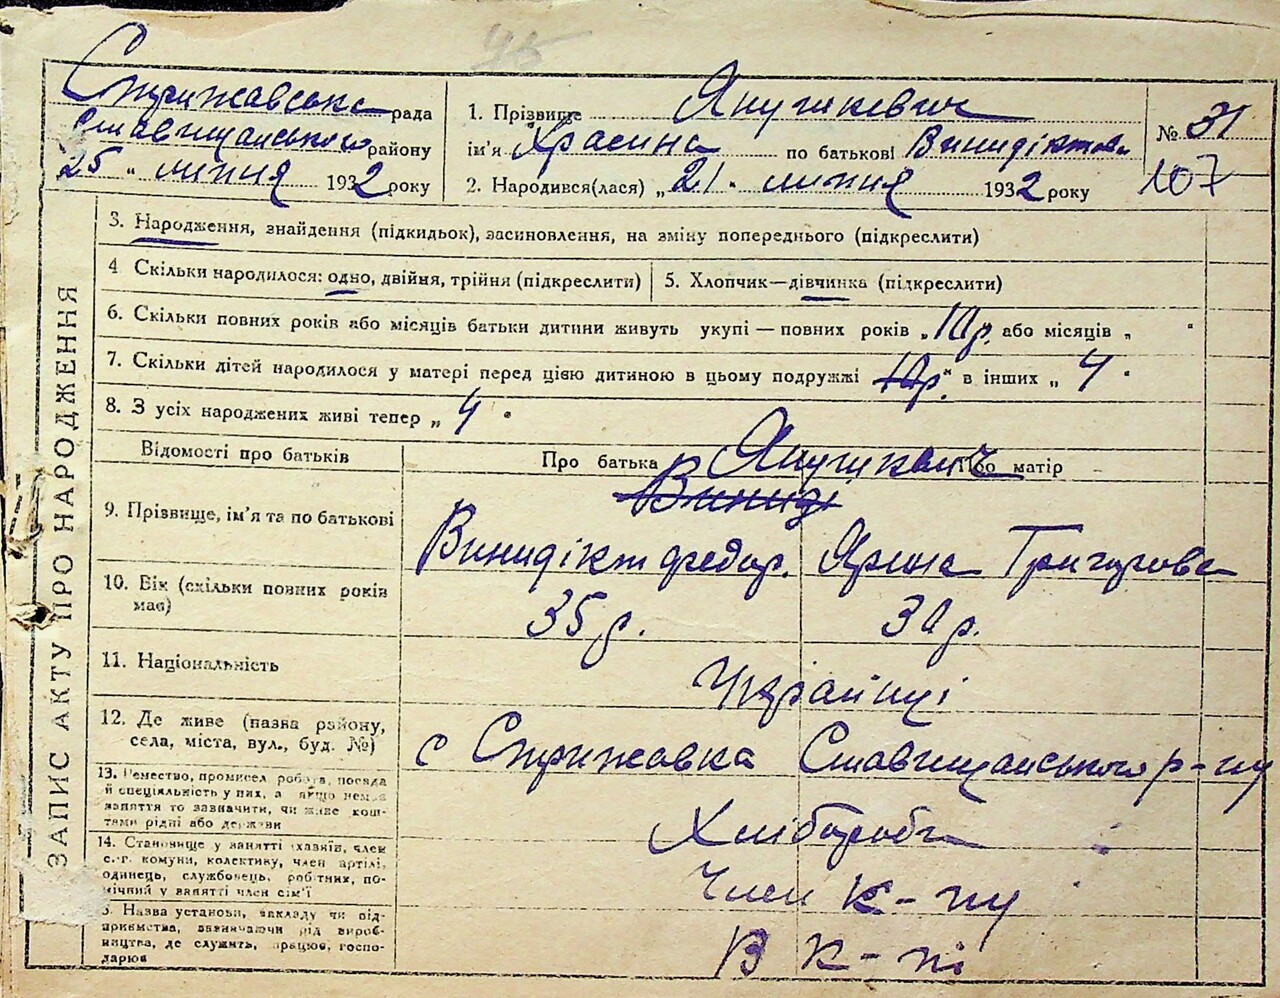 95
Стрижавська рада
Ставищанського району
25 " липня 1932 року
1. Прізвище Янушкевич
ім'я Красина по батькові Винидіктова
2. Народився(лася) „ 21 " липня 1932 року
№ 31
107
ЗАПИС АКТУ ПРО НАРОДЖЕННЯ
3. Народження, знайдення (підкидьок), засиновлення, на зміну попереднього (підкреслити)
4 Скільки народилося: одно, двійня, трійня (підкреслити)
5. Хлопчик—дівчинка (підкреслити)
6. Скільки повних років або місяців батьки дитини живуть укупі — повних років „ 10 р. або місяців „ "
7. Скільки дітей народилося у матері перед цією дитиною в цьому подружжі 10 р. " в інших „ 4 "
8. З усіх народжених живі тепер „ 4 "
Відомості про батьків
Про батька
Про матір
Янушкевич
Виниді
9. Прізвище, ім'я та по батькові
Винидікт Федор. Ярина Григорова
10. Вік (скільки повних років має)
35 р. 30 р.
11. Національність
Українці
12. Де живе (назва району,
села, міста, вул., буд. №)
с Стрижавка Ставищанського р-ну
13. Ремество, промисел робота, посада
й спеціяльність у них, а якщо немає
заняття то зазначити, чи живе кош-
тами рідні або держави
Хлібороби
14. Становище у занятті (хазяїн, член
с.-г. комуни, колективу, член артілі,
одинець, службовець, робітник, по-
мічний у занятті член сім'ї
Член к-пу
5. Назва установи, закладу чи під-
приємства, зазначаючи рід вироб-
ництва, де служить, працює, госпо-
дарює
В к-пі